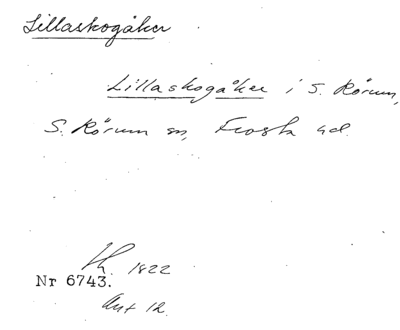 Lillaskogåker
Lillaskogåker i S. Rörum,
S. Rörum sn, Frosta hd.
1822
Nr 6743.
Akt 12.